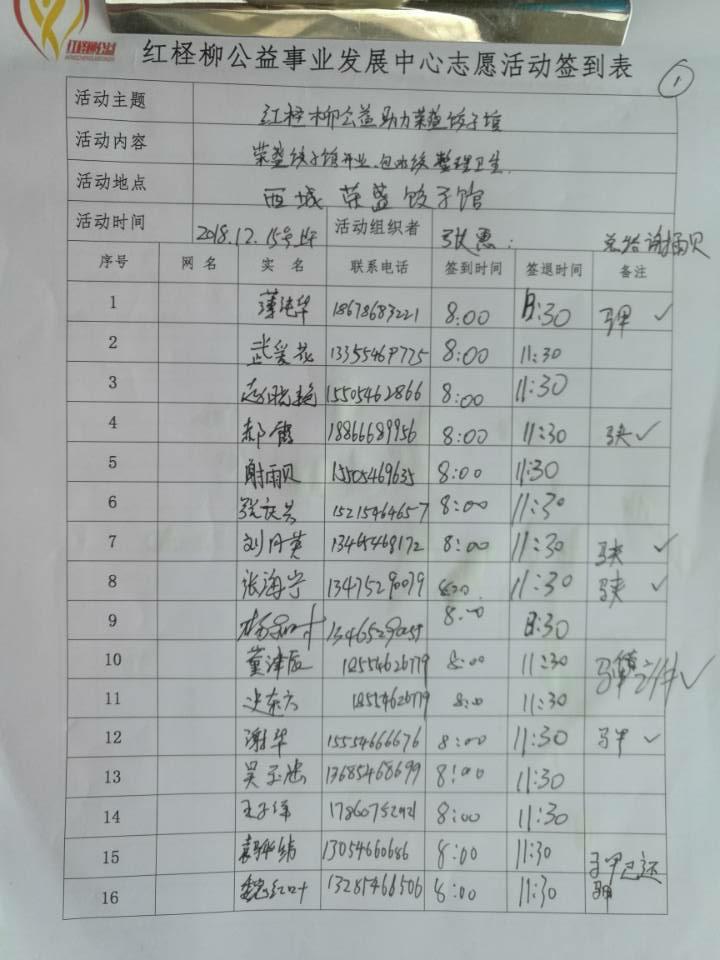 红柽柳公益
红柽柳公益事业发展中心志愿活动签到表
1
活动主题 红柽柳公益助力荣盛饺子馆
活动内容 荣盛饺子馆开业、包水饺 整理卫生.
活动地点 西城 荣盛饺子馆
活动时间 2018.12.15号上午 活动组织者 张惠:
序号 网名 实名 联系电话 签到时间 签退时间 备注
1 薄纯华 18678683221 8:00 11:30 马甲 ✓
2 武爱花 13355469775 8:00 11:30
3 赵晓艳 15505462866 8:00 11:30
4 郝霞 18866689956 8:00 11:30 ✓
5 谢雨贝 15505469635 8:00 11:30
6 15215464657 8:00 11:30
7 刘丹英 13465468172 8:00 11:30 ✓
8 张海宁 13475290079 8:00 11:30 ✓
9 8:00 11:30
10 董津辰 18554626779 8:00 11:30 ✓
11 18554626779 8:00 11:30
12 谢华 15554666676 8:00 11:30 马甲 ✓
13 吴玉 13685468699 8:00 11:30
14 王子洋 8:00 11:30
15 13054660686 8:00 11:30 马甲已还
16 魏红叶 13285468506 8:00 11:30